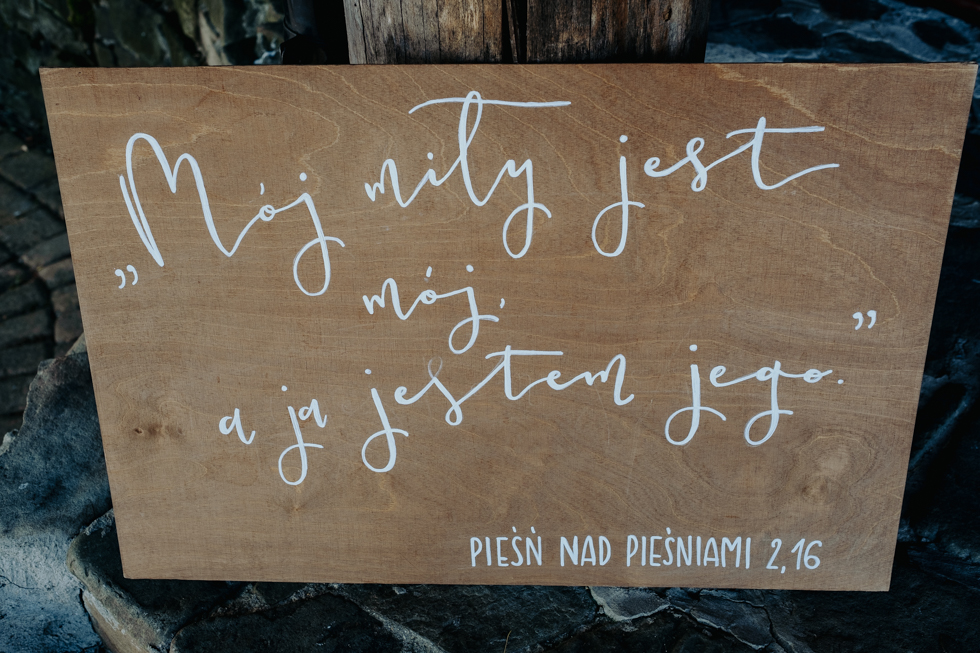 „Mój miły jest
mój,
a ja jestem jego.”
PIEŚŃ NAD PIEŚNIAMI 2,16